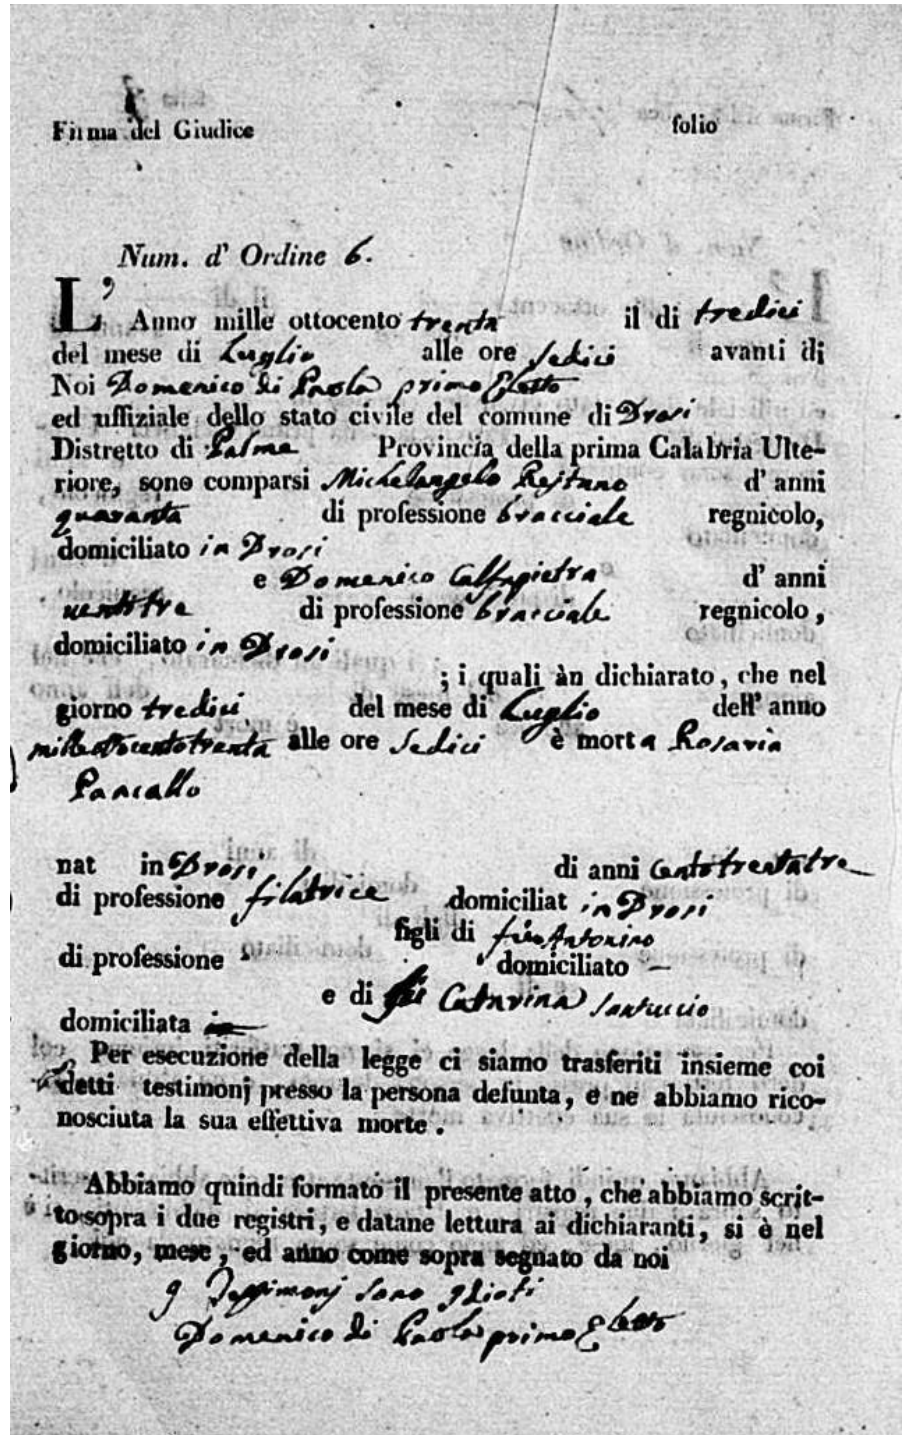 Firma del Giudice folio
Num. d' Ordine 6.
L' Anno mille ottocento trenta il di tredici
del mese di Luglio alle ore sedici avanti di
Noi Domenico di Paola primo Eletto
ed uffiziale dello stato civile del comune di Drosi
Distretto di Palme Provincia della prima Calabria Ulte-
riore, sono comparsi Michelangelo d' anni
quaranta di professione bracciale regnicolo,
domiciliato in Drosi
e Domenico Calfapietra d' anni
ventitre di professione bracciale regnicolo,
domiciliato in Drosi
; i quali àn dichiarato, che nel
giorno tredici del mese di Luglio dell' anno
milleottocentotrenta alle ore sedici è morta Rosaria
Pancallo
nat in Drosi di anni centotrentatre
di professione filatrice domiciliat in Drosi
figli di fu Antonino
di professione - domiciliato —
e di fu Catarina
domiciliata in
Per esecuzione della legge ci siamo trasferiti insieme coi
detti testimonj presso la persona defunta, e ne abbiamo rico-
nosciuta la sua effettiva morte.
Abbiamo quindi formato il presente atto, che abbiamo scrit-
to sopra i due registri, e datane lettura ai dichiaranti, si è nel
giorno, mese, ed anno come sopra segnato da noi
Testimonj sono Idioti
Domenico di Paola primo Eletto